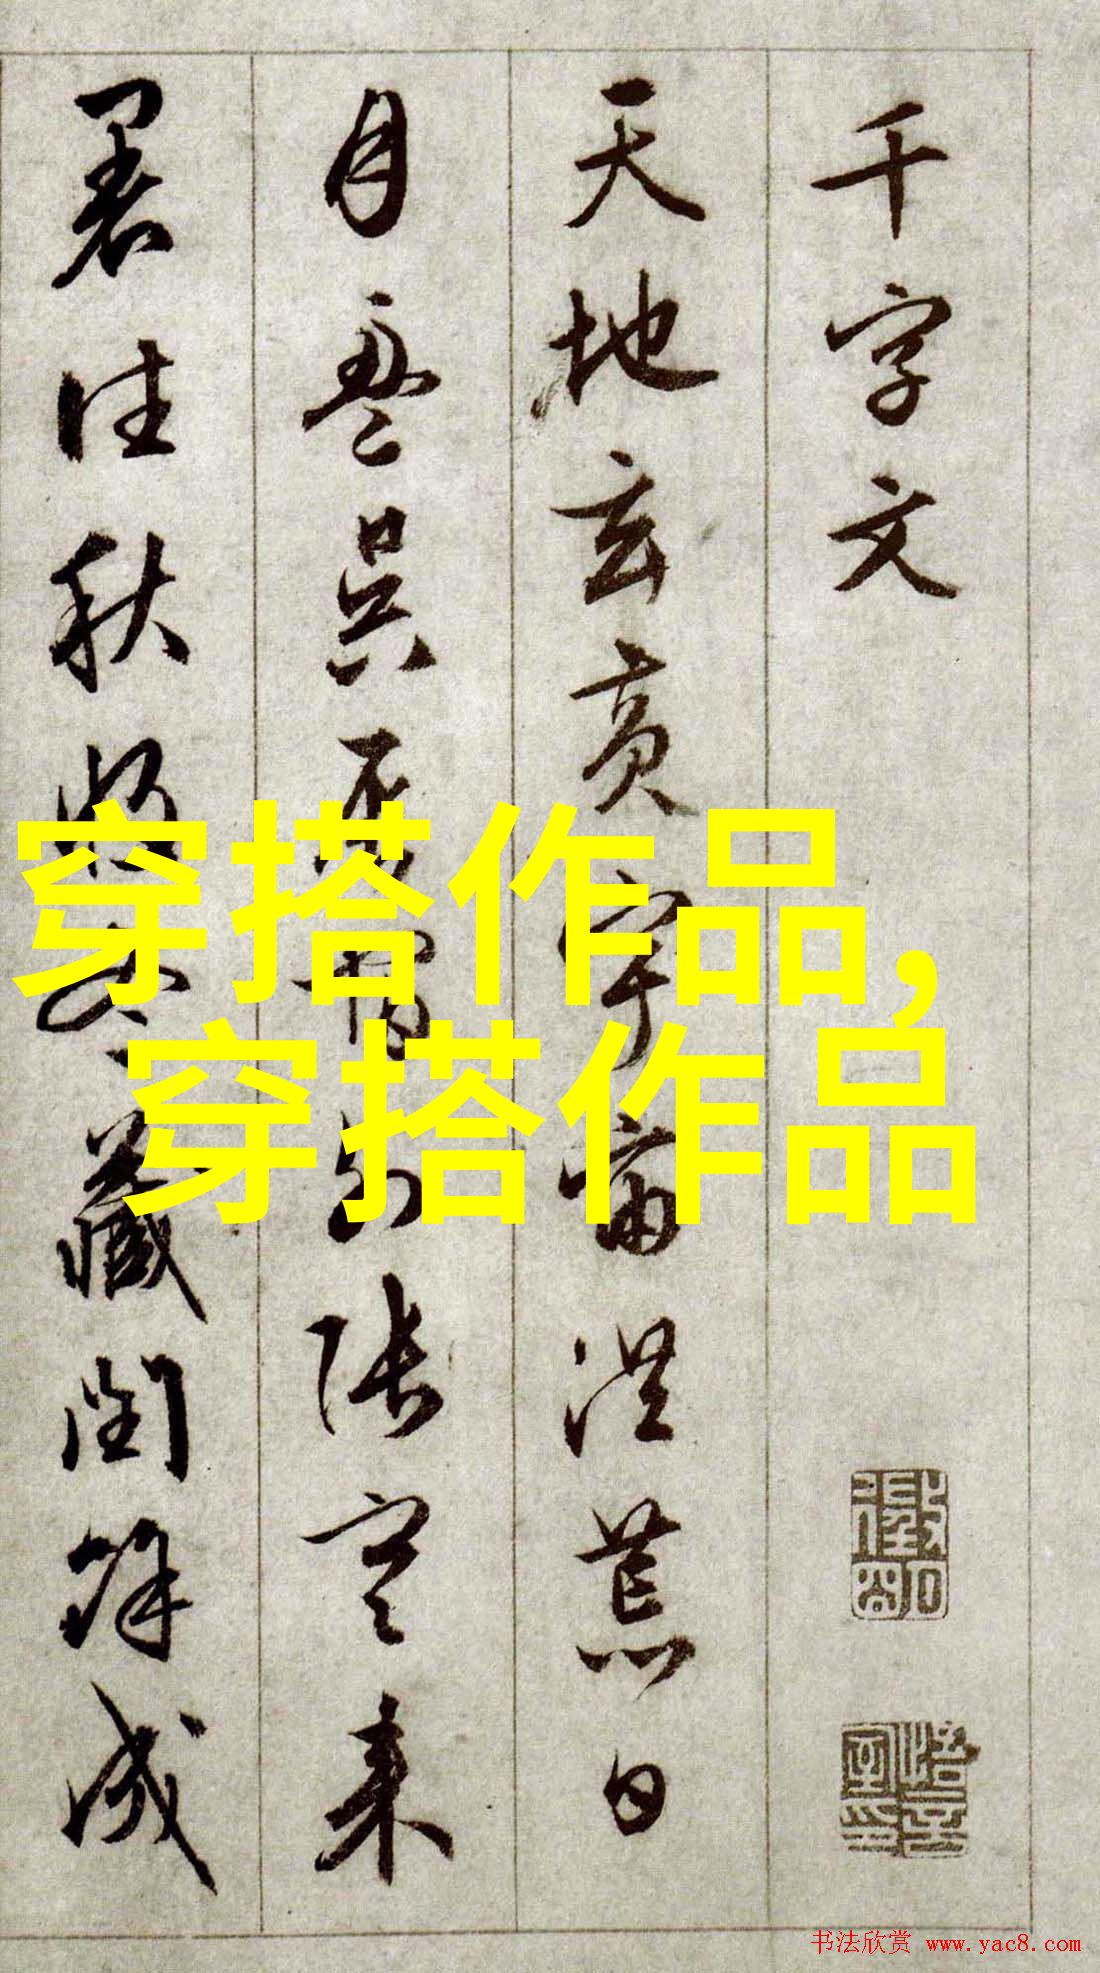 千字文
天地玄黃宇宙洪荒日
月盈昃辰宿列張寒来
暑往秋收冬藏閏餘成
穿搭作品,
穿搭作品
书法欣赏 www.yac8.com